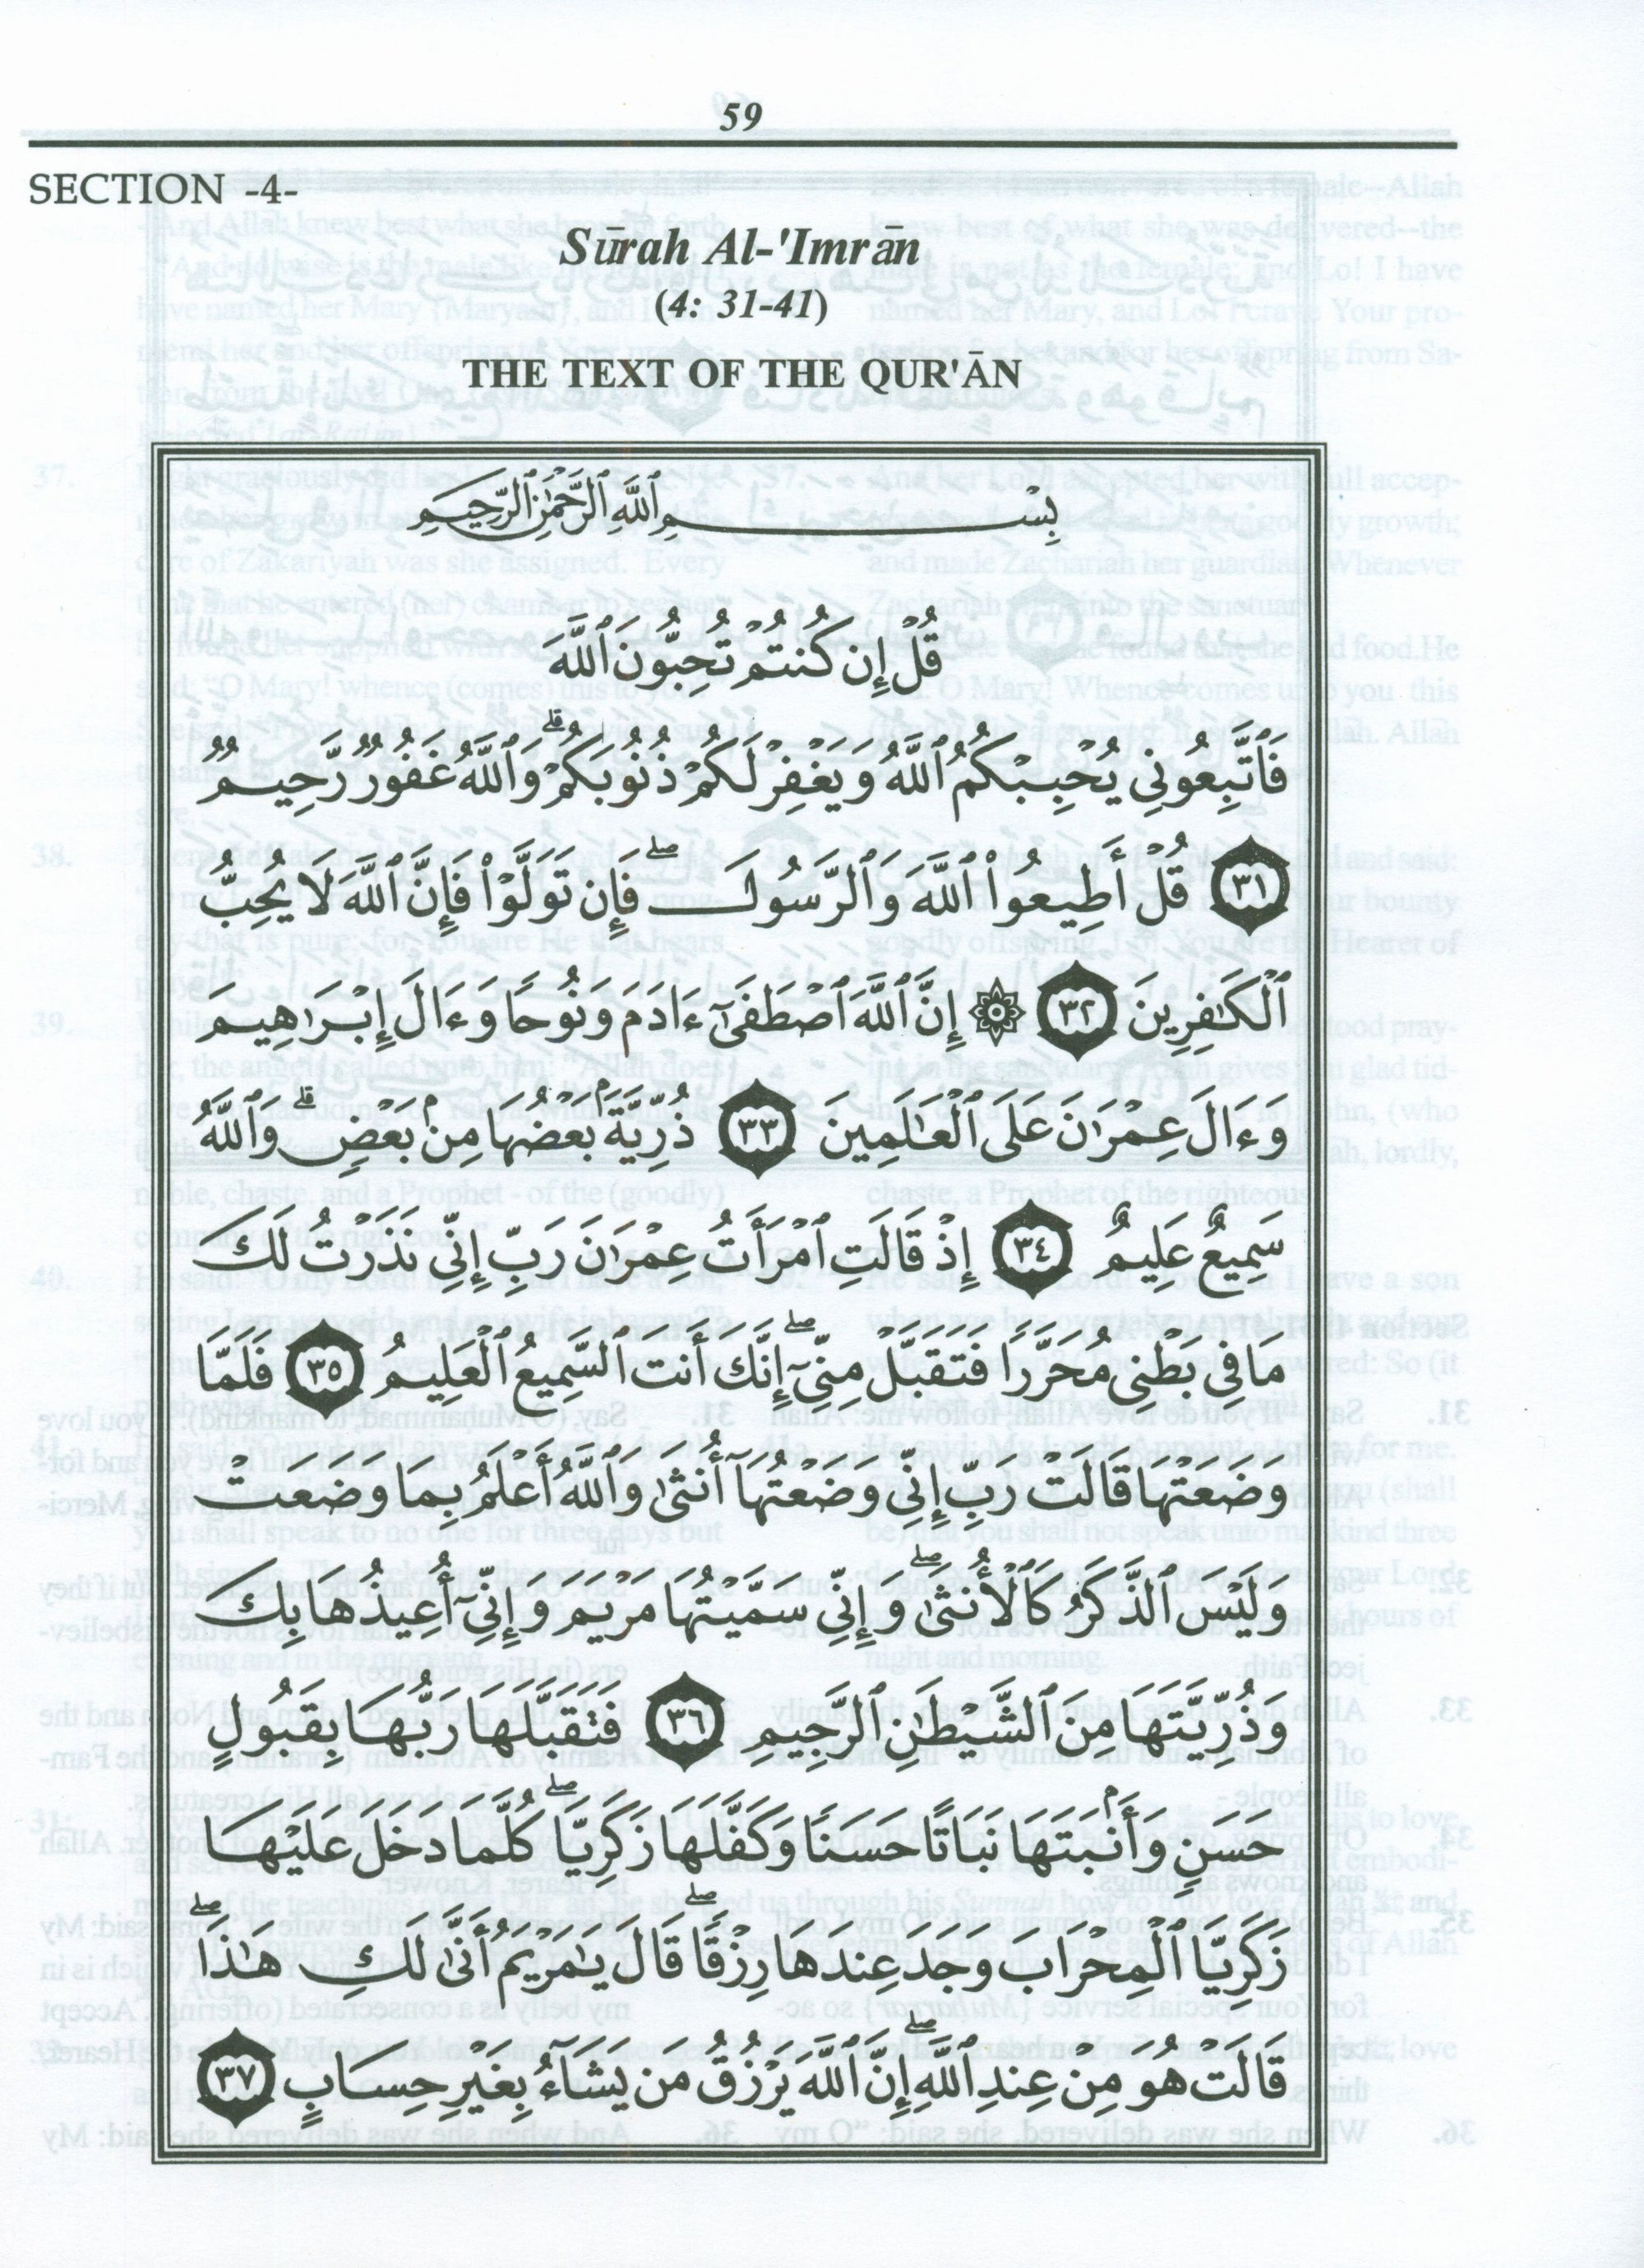 59
SECTION -4-
Sūrah Al-'Imrān
(4: 31-41)
THE TEXT OF THE QUR'ĀN
بِسْمِ ٱللَّهِ ٱلرَّحْمَٰنِ ٱلرَّحِيمِ
قُلْ إِن كُنتُمْ تُحِبُّونَ ٱللَّهَ
فَٱتَّبِعُونِي يُحْبِبْكُمُ ٱللَّهُ وَيَغْفِرْ لَكُمْ ذُنُوبَكُمْ ۗ وَٱللَّهُ غَفُورٌ رَّحِيمٌ
٣١ قُلْ أَطِيعُوا۟ ٱللَّهَ وَٱلرَّسُولَ ۖ فَإِن تَوَلَّوْا۟ فَإِنَّ ٱللَّهَ لَا يُحِبُّ
ٱلْكَٰفِرِينَ ٣٢ ۞ إِنَّ ٱللَّهَ ٱصْطَفَىٰٓ ءَادَمَ وَنُوحًا وَءَالَ إِبْرَٰهِيمَ
وَءَالَ عِمْرَٰنَ عَلَى ٱلْعَٰلَمِينَ ٣٣ ذُرِّيَّةًۢ بَعْضُهَا مِنۢ بَعْضٍ ۗ وَٱللَّهُ
سَمِيعٌ عَلِيمٌ ٣٤ إِذْ قَالَتِ ٱمْرَأَتُ عِمْرَٰنَ رَبِّ إِنِّي نَذَرْتُ لَكَ
مَا فِي بَطْنِي مُحَرَّرًا فَتَقَبَّلْ مِنِّيٓ ۖ إِنَّكَ أَنتَ ٱلسَّمِيعُ ٱلْعَلِيمُ ٣٥ فَلَمَّا
وَضَعَتْهَا قَالَتْ رَبِّ إِنِّي وَضَعْتُهَآ أُنثَىٰ وَٱللَّهُ أَعْلَمُ بِمَا وَضَعَتْ
وَلَيْسَ ٱلذَّكَرُ كَٱلْأُنثَىٰ ۖ وَإِنِّي سَمَّيْتُهَا مَرْيَمَ وَإِنِّيٓ أُعِيذُهَا بِكَ
وَذُرِّيَّتَهَا مِنَ ٱلشَّيْطَٰنِ ٱلرَّجِيمِ ٣٦ فَتَقَبَّلَهَا رَبُّهَا بِقَبُولٍ
حَسَنٍ وَأَنۢبَتَهَا نَبَاتًا حَسَنًا وَكَفَّلَهَا زَكَرِيَّا ۖ كُلَّمَا دَخَلَ عَلَيْهَا
زَكَرِيَّا ٱلْمِحْرَابَ وَجَدَ عِندَهَا رِزْقًا ۖ قَالَ يَٰمَرْيَمُ أَنَّىٰ لَكِ هَٰذَا ۖ
قَالَتْ هُوَ مِنْ عِندِ ٱللَّهِ ۖ إِنَّ ٱللَّهَ يَرْزُقُ مَن يَشَآءُ بِغَيْرِ حِسَابٍ ٣٧